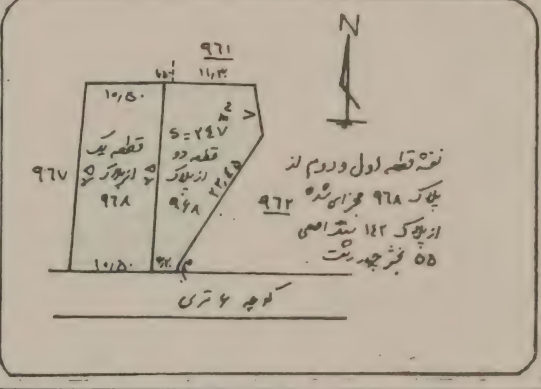 N
۹۶۱
۱۱٫۳۰
۱۰٫۵۰
S = ۲۴۷ m²
۷
قطعه یک
از پلاک
۹۶۸
قطعه دو
از پلاک
۹۶۸
۹۶۷
۲۲٫۴۵
۹۶۲
نقشه قطعه اول و دوم از
پلاک ۹۶۸ مجزای شده
از پلاک ۱۴۲ سنگ اصلی
۵۵ بخش چهار رشت
۱۰٫۵۰
کوچه ۶ متری